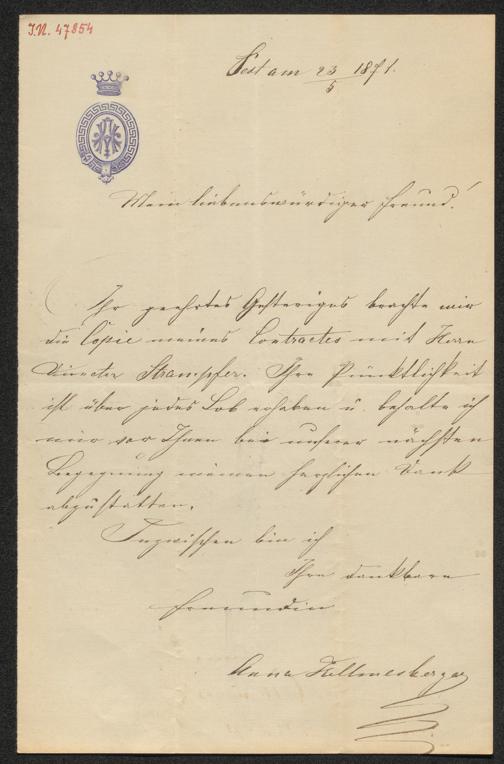 I.N. 47854
Pest am 23/5 1871.
Mein liebenswürdiger Freund!
Ihr geehrtes Gestriges brachte mir
die Copie meines Contractes mit Herrn
Director Strampfer. Ihre Pünktlichkeit
ist über jedes Lob erhaben u. behalte ich
mir vor Ihnen bei unserer nächsten
Begegnung meinen herzlichen Dank
abzustatten.
Inzwischen bin ich
Ihre dankbare
Freundin
Anna Hellmesberger